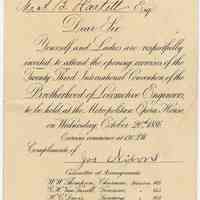 Mr A. B. Hartlett Esq.
Dear Sir
Yourself and Ladies are respectfully
invited to attend the opening exercises of the
Twenty Third International Convention of the
Brotherhood of Locomotive Engineers,
to be held at the Metropolitan Opera House
on Wednesday October 20th 1886.
Exercises commence at
Compliments of
Committee of Arrangements
W. W. Thompson, Chairman, Division 105
Division 145